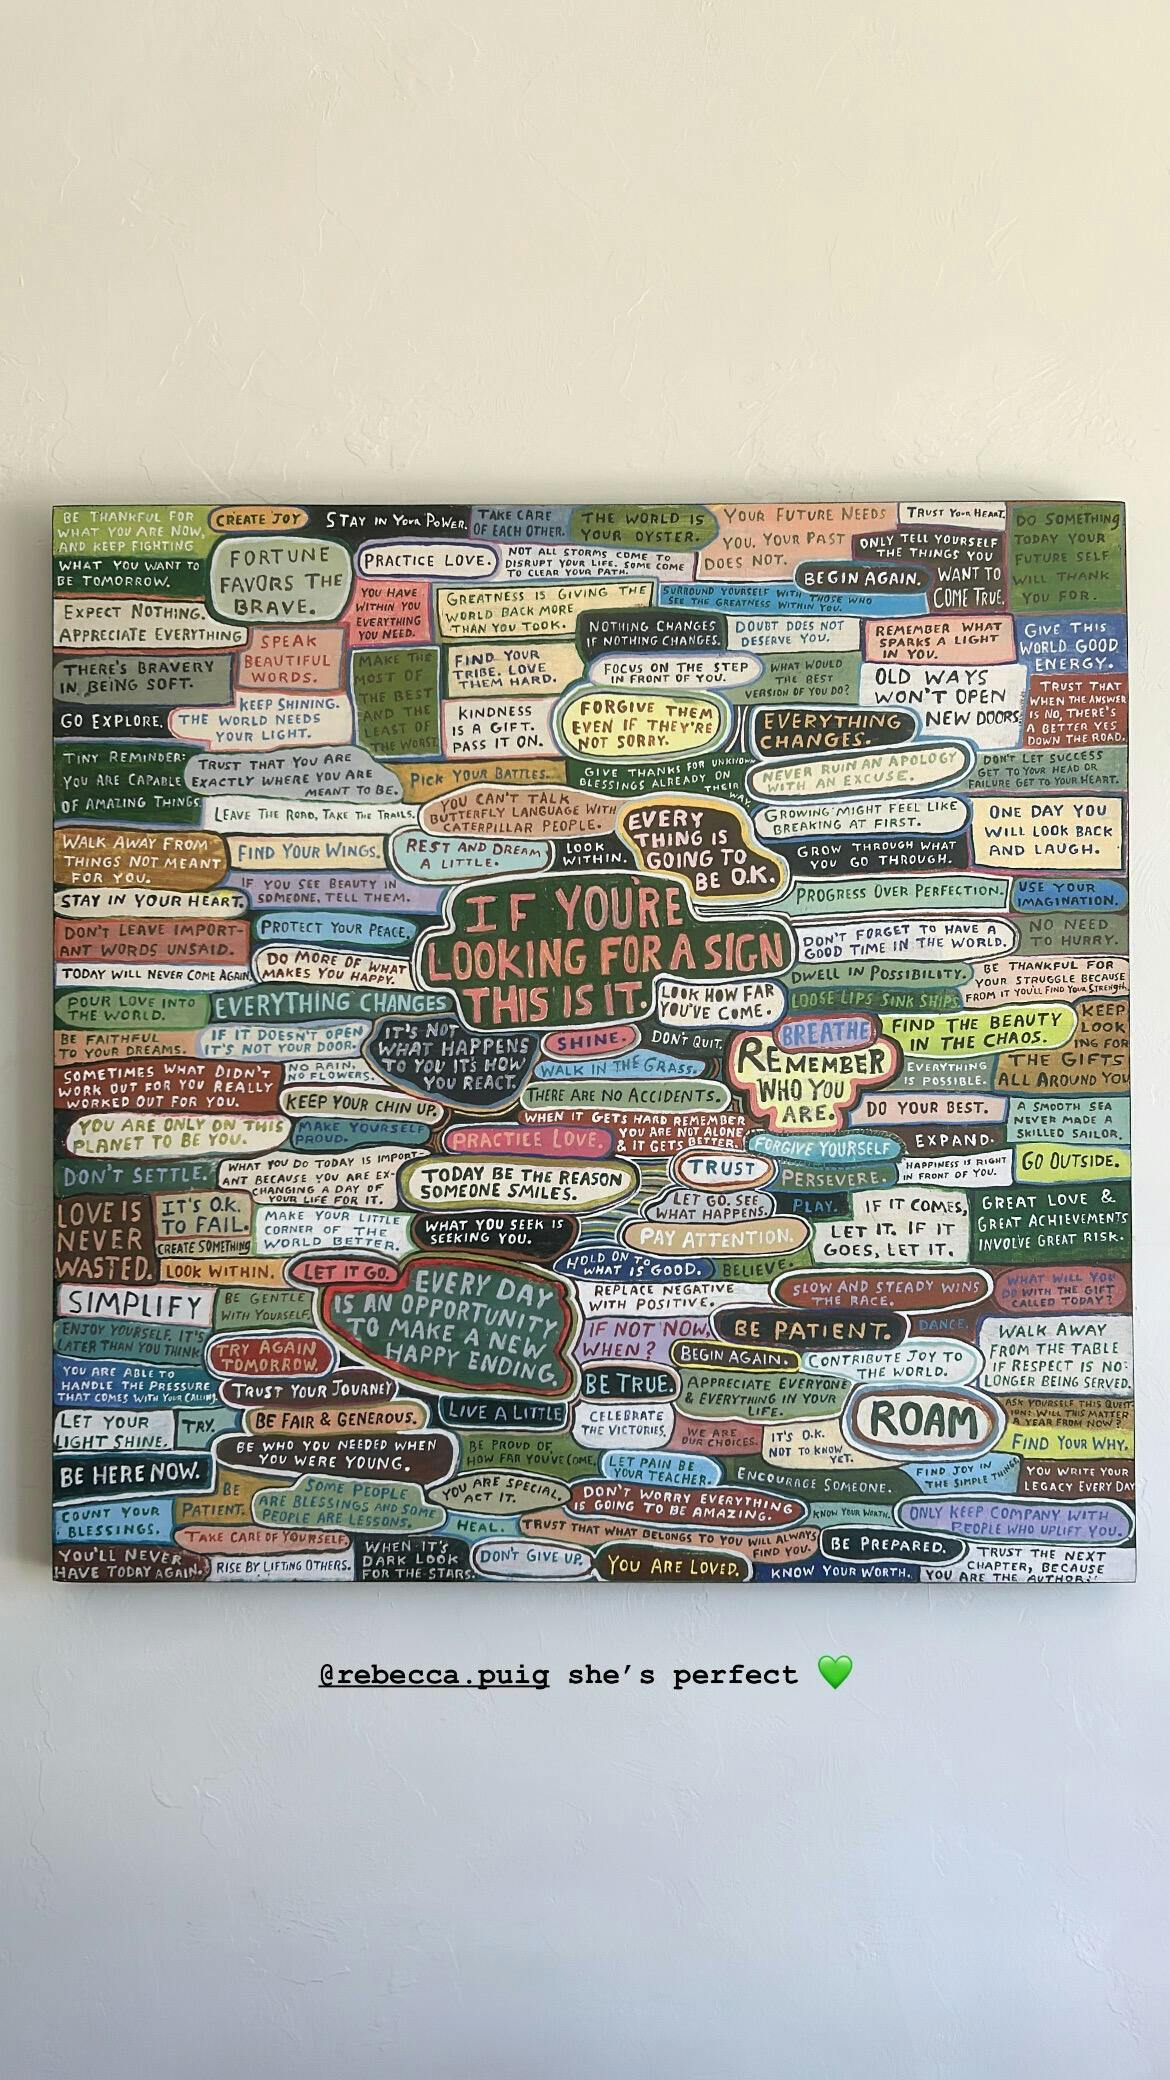 BE THANKFUL FOR
WHAT YOU ARE NOW,
AND KEEP FIGHTING
WHAT YOU WANT TO
BE TOMORROW.
CREATE JOY
STAY IN YOUR POWER.
TAKE CARE
OF EACH OTHER.
THE WORLD IS
YOUR OYSTER.
YOUR FUTURE NEEDS
YOU. YOUR PAST
DOES NOT.
TRUST YOUR HEART.
DO SOMETHING
TODAY YOUR
FUTURE SELF
WILL THANK
YOU FOR.
FORTUNE
FAVORS THE
BRAVE.
PRACTICE LOVE.
NOT ALL STORMS COME TO
DISRUPT YOUR LIFE. SOME COME
TO CLEAR YOUR PATH.
ONLY TELL YOURSELF
THE THINGS YOU
WANT TO
COME TRUE.
BEGIN AGAIN.
EXPECT NOTHING.
APPRECIATE EVERYTHING
YOU HAVE
WITHIN YOU
EVERYTHING
YOU NEED.
GREATNESS IS GIVING THE
WORLD BACK MORE
THAN YOU TOOK.
SURROUND YOURSELF WITH THOSE WHO
SEE THE GREATNESS WITHIN YOU.
SPEAK
BEAUTIFUL
WORDS.
NOTHING CHANGES
IF NOTHING CHANGES.
DOUBT DOES NOT
DESERVE YOU.
REMEMBER WHAT
SPARKS A LIGHT
IN YOU.
GIVE THIS
WORLD GOOD
ENERGY.
THERE'S BRAVERY
IN BEING SOFT.
MAKE THE
MOST OF
THE BEST
AND THE
LEAST OF
THE WORST.
FIND YOUR
TRIBE. LOVE
THEM HARD.
FOCUS ON THE STEP
IN FRONT OF YOU.
WHAT WOULD
THE BEST
VERSION OF YOU DO?
OLD WAYS
WON'T OPEN
NEW DOORS.
TRUST THAT
WHEN THE ANSWER
IS NO, THERE'S
A BETTER YES
DOWN THE ROAD.
GO EXPLORE.
KEEP SHINING.
THE WORLD NEEDS
YOUR LIGHT.
KINDNESS
IS A GIFT.
PASS IT ON.
FORGIVE THEM
EVEN IF THEY'RE
NOT SORRY.
EVERYTHING
CHANGES.
TINY REMINDER:
YOU ARE CAPABLE
OF AMAZING THINGS
TRUST THAT YOU ARE
EXACTLY WHERE YOU ARE
MEANT TO BE.
PICK YOUR BATTLES.
GIVE THANKS FOR UNKNOWN
BLESSINGS ALREADY ON
THEIR
WAY.
NEVER RUIN AN APOLOGY
WITH AN EXCUSE.
DON'T LET SUCCESS
GET TO YOUR HEAD OR
FAILURE GET TO YOUR HEART.
LEAVE THE ROAD, TAKE THE TRAILS.
YOU CAN'T TALK
BUTTERFLY LANGUAGE WITH
CATERPILLAR PEOPLE.
EVERY
THING IS
GOING TO
BE O.K.
GROWING MIGHT FEEL LIKE
BREAKING AT FIRST.
ONE DAY YOU
WILL LOOK BACK
AND LAUGH.
WALK AWAY FROM
THINGS NOT MEANT
FOR YOU.
FIND YOUR WINGS.
REST AND DREAM
A LITTLE.
LOOK
WITHIN.
GROW THROUGH WHAT
YOU GO THROUGH.
STAY IN YOUR HEART.
IF YOU SEE BEAUTY IN
SOMEONE, TELL THEM.
IF YOU'RE
LOOKING FOR A SIGN
THIS IS IT.
PROGRESS OVER PERFECTION.
USE YOUR
IMAGINATION.
DON'T LEAVE IMPORT-
ANT WORDS UNSAID.
PROTECT YOUR PEACE.
DON'T FORGET TO HAVE A
GOOD TIME IN THE WORLD.
NO NEED
TO HURRY.
TODAY WILL NEVER COME AGAIN.
DO MORE OF WHAT
MAKES YOU HAPPY.
DWELL IN POSSIBILITY.
BE THANKFUL FOR
YOUR STRUGGLE BECAUSE
FROM IT YOU'LL FIND YOUR STRENGTH.
POUR LOVE INTO
THE WORLD.
EVERYTHING CHANGES
LOOK HOW FAR
YOU'VE COME.
LOOSE LIPS SINK SHIPS.
KEEP
LOOK
ING FOR
THE GIFTS
ALL AROUND YOU
BE FAITHFUL
TO YOUR DREAMS.
IF IT DOESN'T OPEN
IT'S NOT YOUR DOOR.
IT'S NOT
WHAT HAPPENS
TO YOU IT'S HOW
YOU REACT.
SHINE.
DON'T QUIT.
BREATHE
FIND THE BEAUTY
IN THE CHAOS.
SOMETIMES WHAT DIDN'T
WORK OUT FOR YOU REALLY
WORKED OUT FOR YOU.
NO RAIN,
NO FLOWERS.
WALK IN THE GRASS.
REMEMBER
WHO YOU
ARE.
EVERYTHING
IS POSSIBLE.
KEEP YOUR CHIN UP.
THERE ARE NO ACCIDENTS.
DO YOUR BEST.
A SMOOTH SEA
NEVER MADE A
SKILLED SAILOR.
YOU ARE ONLY ON THIS
PLANET TO BE YOU.
MAKE YOURSELF
PROUD.
PRACTICE LOVE.
WHEN IT GETS HARD REMEMBER
YOU ARE NOT ALONE
& IT GETS BETTER.
FORGIVE YOURSELF
EXPAND.
DON'T SETTLE.
WHAT YOU DO TODAY IS IMPORT-
ANT BECAUSE YOU ARE EX-
CHANGING A DAY OF
YOUR LIFE FOR IT.
TODAY BE THE REASON
SOMEONE SMILES.
TRUST
PERSEVERE.
HAPPINESS IS RIGHT
IN FRONT OF YOU.
GO OUTSIDE.
LOVE IS
NEVER
WASTED.
IT'S O.K.
TO FAIL.
CREATE SOMETHING
MAKE YOUR LITTLE
CORNER OF THE
WORLD BETTER.
WHAT YOU SEEK IS
SEEKING YOU.
LET GO. SEE
WHAT HAPPENS.
PLAY.
IF IT COMES,
LET IT. IF IT
GOES, LET IT.
GREAT LOVE &
GREAT ACHIEVEMENTS
INVOLVE GREAT RISK.
PAY ATTENTION.
LOOK WITHIN.
LET IT GO.
HOLD ON TO
WHAT IS GOOD.
BELIEVE.
SIMPLIFY
BE GENTLE
WITH YOURSELF.
EVERY DAY
IS AN OPPORTUNITY
TO MAKE A NEW
HAPPY ENDING.
REPLACE NEGATIVE
WITH POSITIVE.
SLOW AND STEADY WINS
THE RACE.
WHAT WILL YOU
DO WITH THE GIFT
CALLED TODAY?
ENJOY YOURSELF. IT'S
LATER THAN YOU THINK.
TRY AGAIN
TOMORROW.
IF NOT NOW,
WHEN?
BE PATIENT.
DANCE.
WALK AWAY
FROM THE TABLE
IF RESPECT IS NO
LONGER BEING SERVED.
BEGIN AGAIN.
CONTRIBUTE JOY TO
THE WORLD.
YOU ARE ABLE TO
HANDLE THE PRESSURE
THAT COMES WITH YOUR CALLING
TRUST YOUR JOURNEY
BE TRUE.
APPRECIATE EVERYONE
& EVERYTHING IN YOUR
LIFE.
ROAM
ASK YOURSELF THIS QUEST-
ION: WILL THIS MATTER
A YEAR FROM NOW?
LET YOUR
LIGHT SHINE.
TRY.
BE FAIR & GENEROUS.
LIVE A LITTLE
CELEBRATE
THE VICTORIES.
WE ARE
OUR CHOICES.
IT'S O.K.
NOT TO KNOW
YET.
FIND YOUR WHY.
BE HERE NOW.
BE WHO YOU NEEDED WHEN
YOU WERE YOUNG.
BE PROUD OF
HOW FAR YOU'VE COME.
LET PAIN BE
YOUR TEACHER.
ENCOURAGE SOMEONE.
FIND JOY IN
THE SIMPLE THINGS
YOU WRITE YOUR
LEGACY EVERY DAY
COUNT YOUR
BLESSINGS.
BE
PATIENT.
SOME PEOPLE
ARE BLESSINGS AND SOME
PEOPLE ARE LESSONS.
YOU ARE SPECIAL.
ACT IT.
DON'T WORRY EVERYTHING
IS GOING TO BE AMAZING.
KNOW YOUR WORTH.
ONLY KEEP COMPANY WITH
PEOPLE WHO UPLIFT YOU.
TAKE CARE OF YOURSELF.
HEAL.
TRUST THAT WHAT BELONGS TO YOU WILL ALWAYS
FIND YOU.
BE PREPARED.
YOU'LL NEVER
HAVE TODAY AGAIN.
RISE BY LIFTING OTHERS.
WHEN IT'S
DARK LOOK
FOR THE STARS.
DON'T GIVE UP.
YOU ARE LOVED.
KNOW YOUR WORTH.
TRUST THE NEXT
CHAPTER, BECAUSE
YOU ARE THE AUTHOR.
@rebecca.puig she's perfect 💚